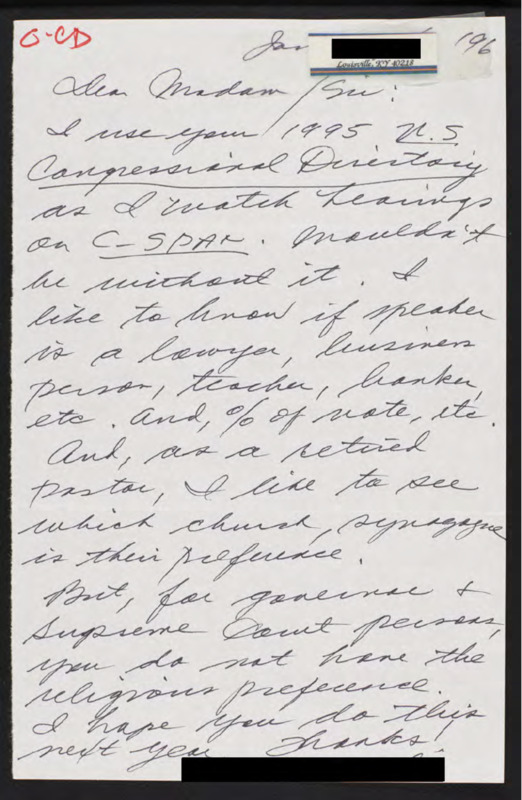 O-CD
Jan '96
Louisville, KY 40218
Dear Madam/Sir:
I use your 1995 U.S
Congressional Directory
as I watch hearings
on C-SPAN. Wouldn't
be without it. I
like to know if speaker
is a lawyer, business
person, teacher, banker,
etc. And, % of vote, etc.
And, as a retired
pastor, I like to see
which church, synagogue
is their preference.
But, for governor &
Supreme Court persons,
you do not have the
religious preference.
I hope you do this
next year Thanks!